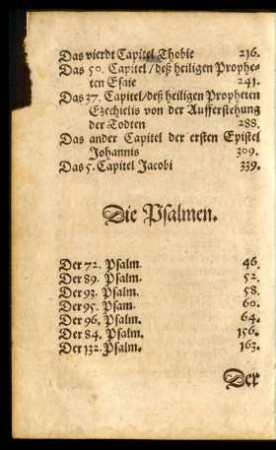 Das vierdt Capitel Thobie 216.
Das 50. Capitel / deß heiligen Prophe-
ten Esaie 241.
Das 37. Capitel / deß heiligen Propheten
Ezechielis von der Aufferstehung
der Todten 288.
Das ander Capitel der ersten Epistel
Johannis 309.
Das 5. Capitel Jacobi 339.
Die Psalmen.
Der 72. Psalm. 46.
Der 89. Psalm. 52.
Der 93. Psalm. 58.
Der 95. Psam. 60.
Der 96. Psalm. 64.
Der 84. Psalm. 156.
Der 132. Psalm. 163.
Der